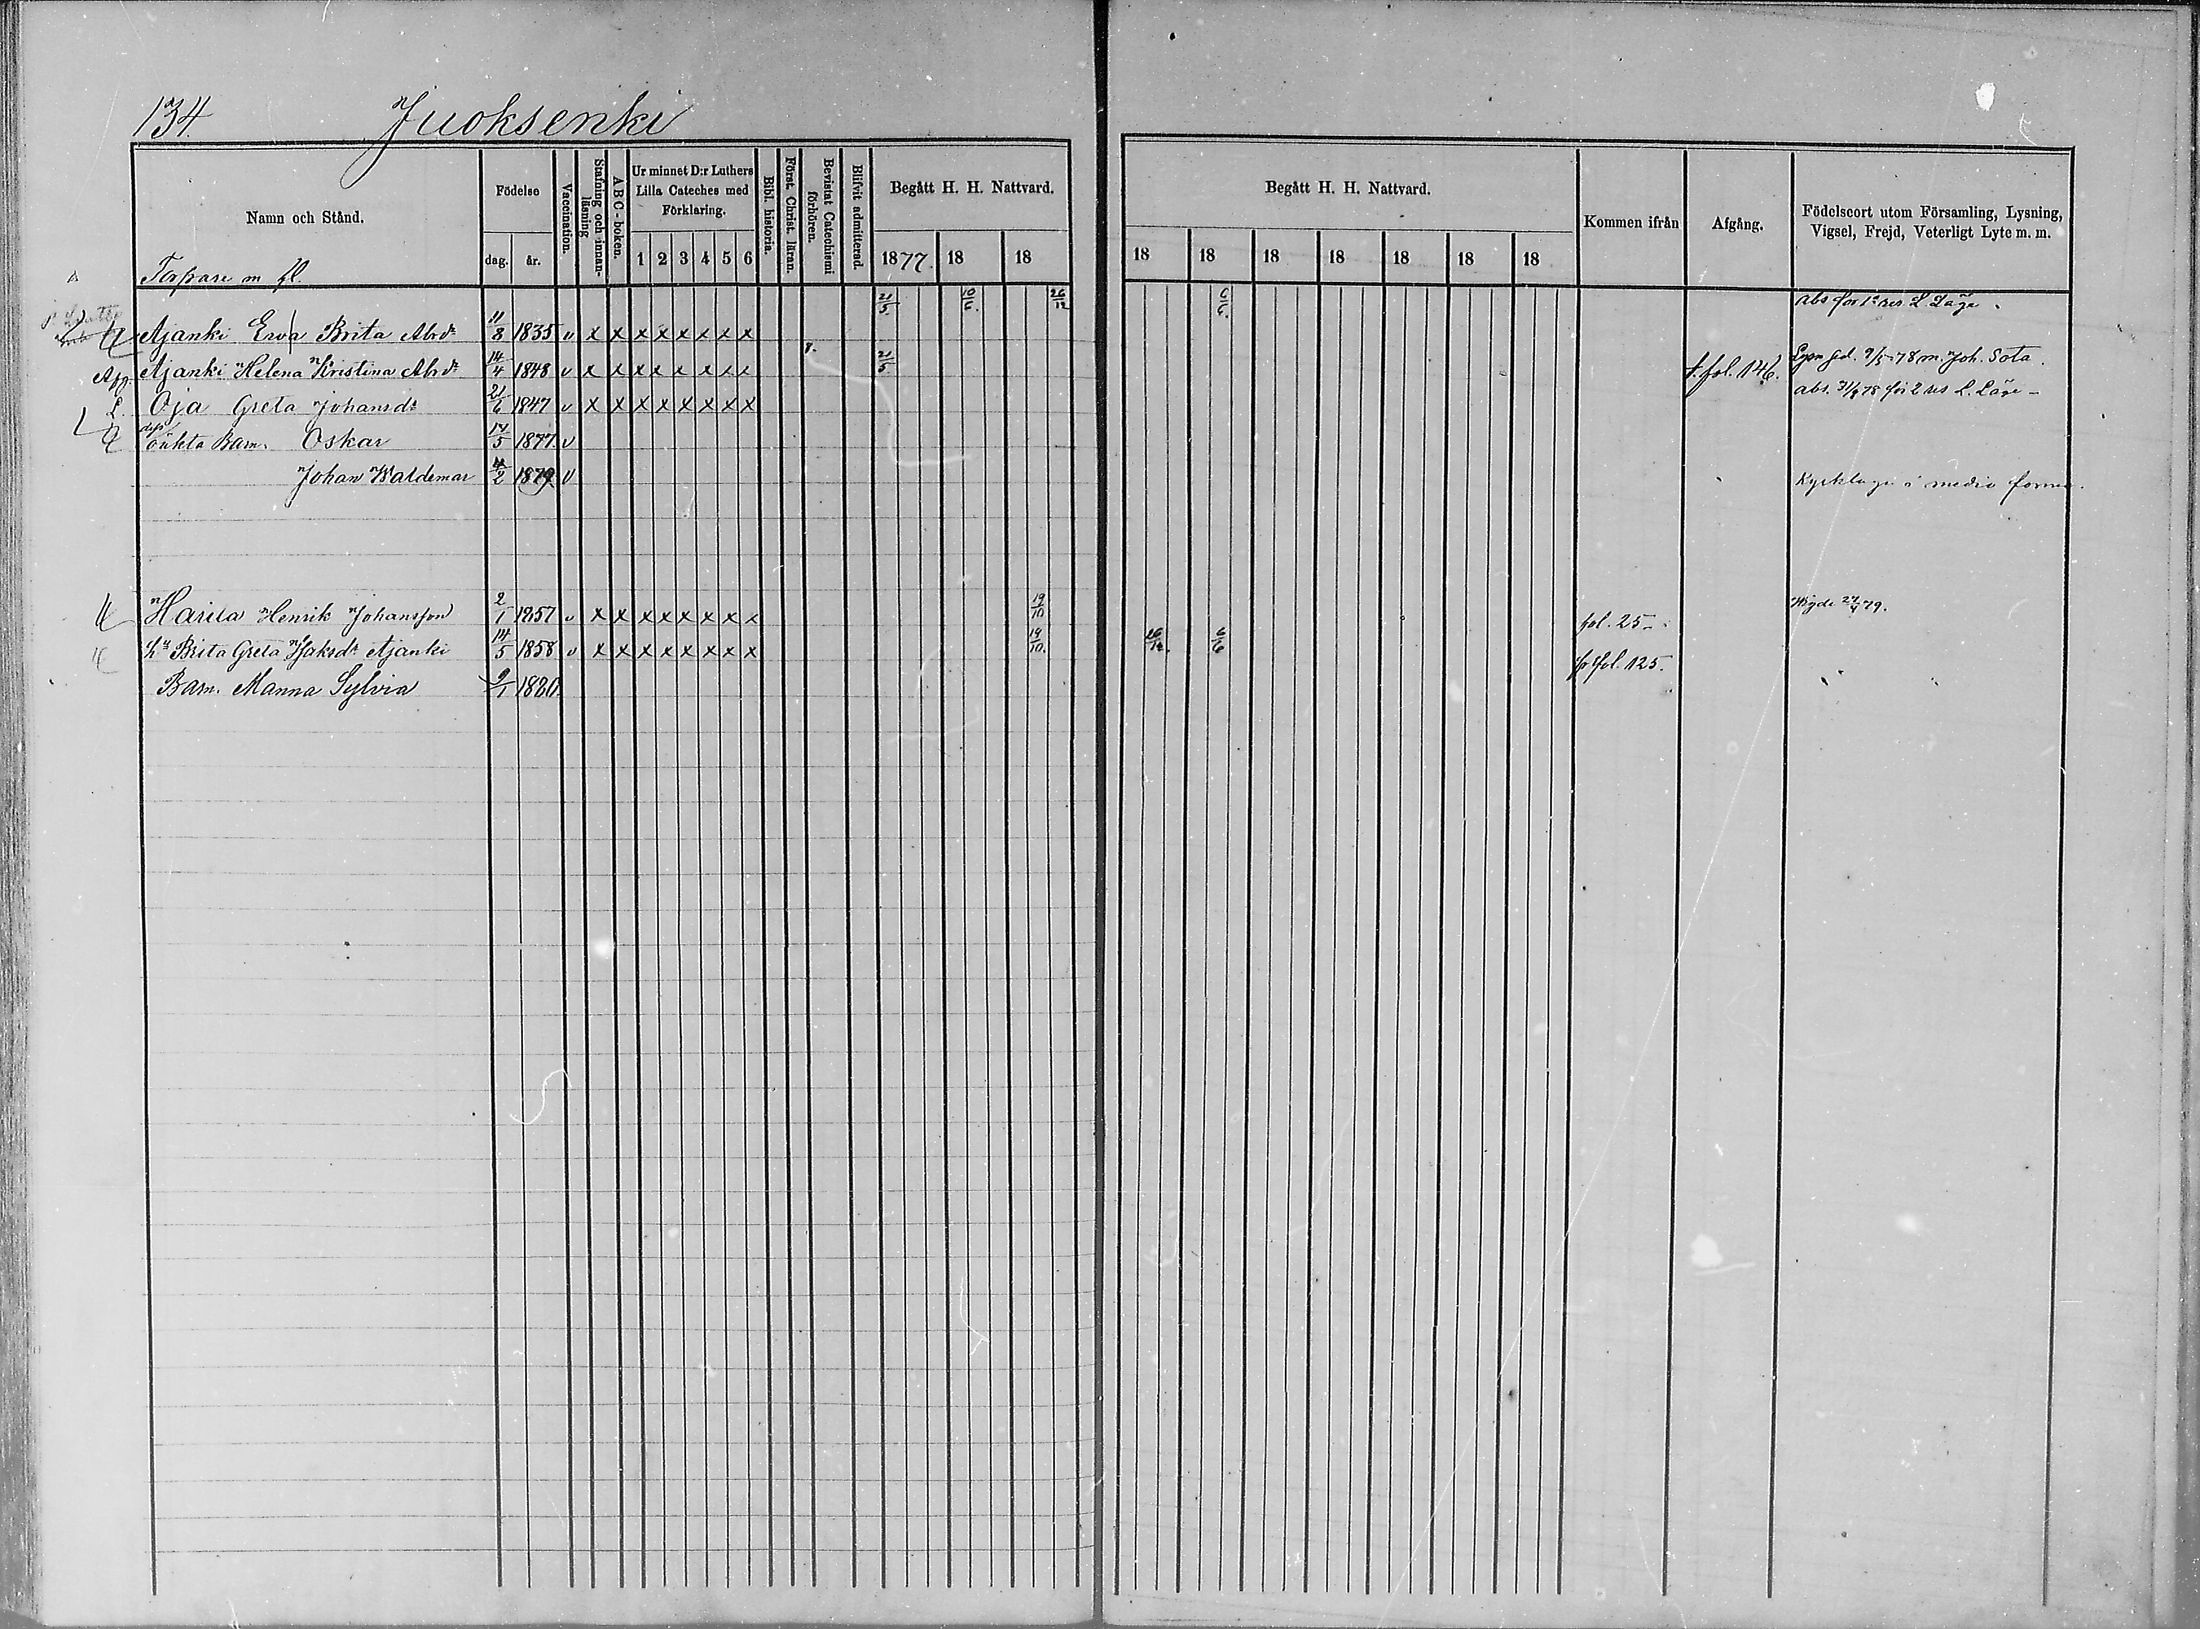 134 Juoksenki
Namn och Stånd.
Födelse
dag. år.
Vaccination.
Stafning och innanläsning
A B C-boken.
Ur minnet D:r Luthers
Lilla Cateches med
Förklaring.
1 2 3 4 5 6
Bibl. historia.
Först. Christ. läran.
Bevistat Catechismi
förhören.
Blifvit admitterad.
Begått H. H. Nattvard.
1877. 18 18
Begått H. H. Nattvard.
18 18 18 18 18 18 18
Kommen ifrån
Afgång.
Födelseort utom Församling, Lysning,
Vigsel, Frejd, Veterligt Lyte m. m.
Torpare m fl.
Ajanki Eva Brita Abrdr 11/8 1835 v x x x x x x x x 21/5 10/6. 26/12 6/6. abs för 1a res L. Läge.
Ajanki Helena Kristina Abrdr 14/4 1848 v x x x x x x x x 21/5 t. fol. 146. Lysn fid. 9/5 78 m. Joh. Sota.
L. Oja Greta Johansdr 21/6 1847 v x x x x x x x x abs. 78 för 2 res L. Läge -
oäkta Barn. Oskar 17/5 1877 v
Johan Waldemar 4/2 1879 v Kyrktagn i medio
Harila Henrik Johansson 2/1 1857 v x x x x x x x x 19/10 fol. 25 Wigde 27/4 79.
Hu Brita Greta Isaksdr Ajanki 14/5 1858 v x x x x x x x x 19/10. 26/12. 6/6 fr fol. 125.
Barn. Manna Sylvia 9/1 1880.